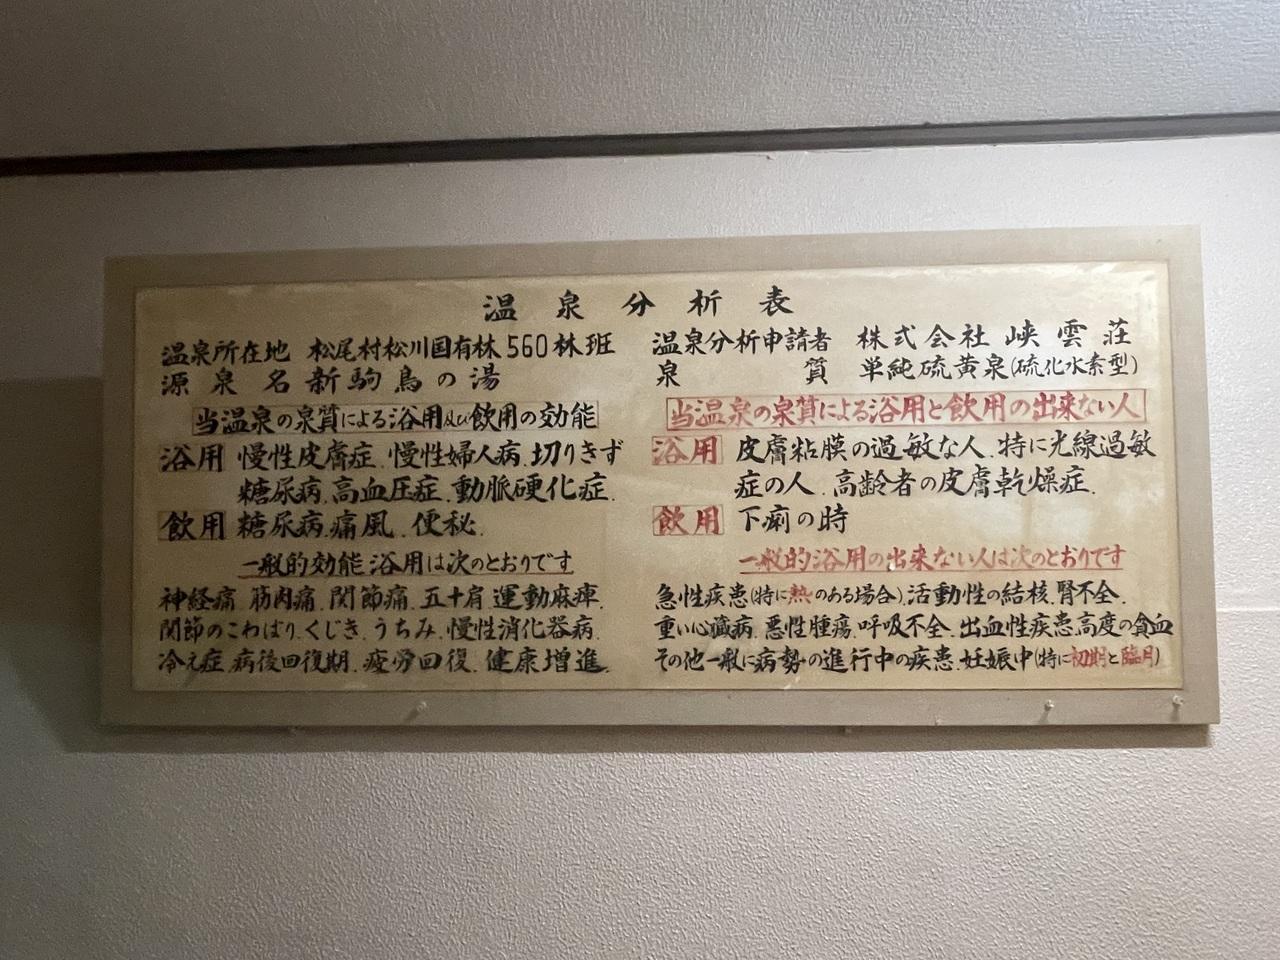 温泉分析表
温泉所在地 松尾村松川国有林560林班
源泉名 新駒鳥の湯
当温泉の泉質による浴用及び飲用の効能
浴用 慢性皮膚症.慢性婦人病.切りきず
糖尿病.高血圧症.動脈硬化症.
飲用 糖尿病.痛風.便秘.
一般的効能 浴用は次のとおりです
神経痛.筋肉痛.関節痛.五十肩.運動麻痺.
関節のこわばり.くじき.うちみ.慢性消化器病.
冷え症.病後回復期.疲労回復.健康増進.
温泉分析申請者 株式会社 峡雲荘
泉質 単純硫黄泉(硫化水素型)
当温泉の泉質による浴用と飲用の出来ない人
浴用 皮膚粘膜の過敏な人.特に光線過敏
症の人.高齢者の皮膚乾燥症.
飲用 下痢の時
一般的浴用の出来ない人は次のとおりです
急性疾患(特に熱のある場合).活動性の結核.腎不全.
重い心臓病.悪性腫瘍.呼吸不全.出血性疾患.高度の貧血
その他一般に病勢の進行中の疾患.妊娠中(特に初期と臨月)